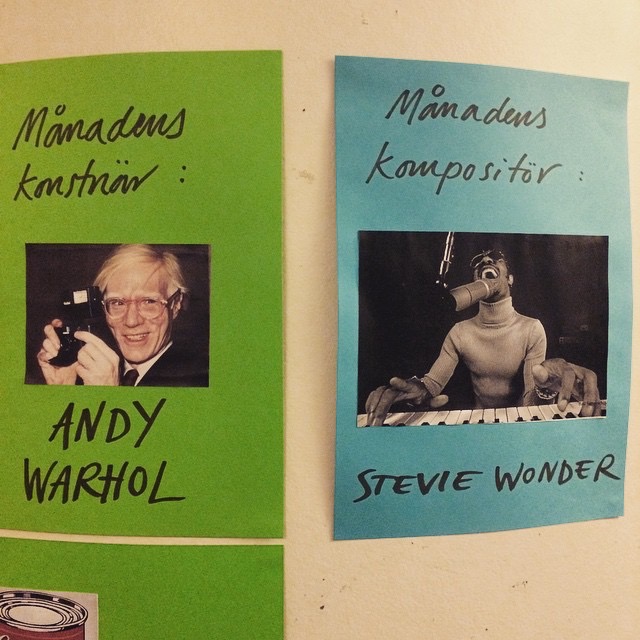 Månadens
konstnär :
ANDY
WARHOL
Månadens
kompositör :
STEVIE WONDER